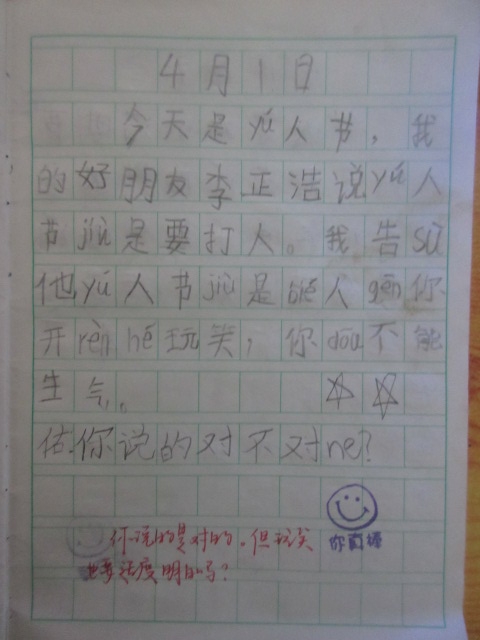 4月1日
今天是yú人节，我
的好朋友李正浩说yú人
节jiù是要打人。我告sù
他yú人节jiù是bié人gēn你
开rèn hé玩笑，你dōu不能
生气。
你说的对不对ne?
你真棒
你说的是对的，但玩笑
也要适度明白吗？